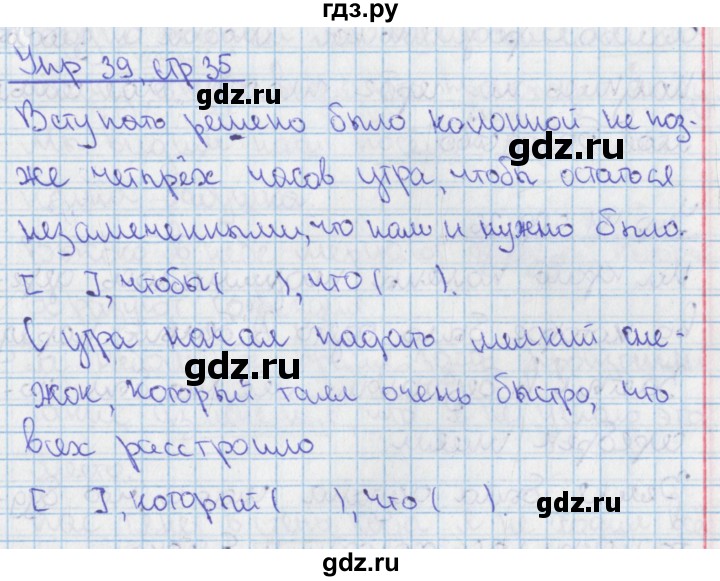 гдз.ру
Упр 39, стр 35
gdz.ru
Вступать решено было колонной не поз-
gdz.ru
же четырёх часов утра, чтобы остаться
незамеченными, что нам и нужно было.
[ ], чтобы ( ), что ( ).
gdz.ru
gdz.ru
С утра начал падать мелкий сне-
жок, который таял очень быстро, что
gdz.ru
всех расстроило
gdz.ru
[ ], который ( ), что ( ).
gdz.ru
gdz.ru